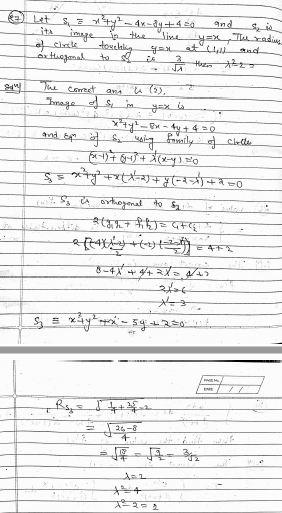 Let S₁ ≡ x²+y²-4x-8y+4=0 and S₂ is
its image in the line y=x, The radius
of circle touching y=x at (1,1) and
orthogonal to S₂ is 3/√λ then λ²-2=
The correct ans is (2).
Image of S₁ in y=x is
x²+y²-8x-4y+4=0
and eqn of S₃ using family of circles
(x-1)²+(y-1)²+λ'(x-y)=0
S₃ ≡ x²+y²+x(λ'-2)+y(-2-λ')+2=0
S₃ is orthogonal to S₂
2(g₁g₂+f₁f₂)=c₁+c₂
2[(-4)(λ'-2)/2+(-2)(-2-λ')/2]=4+2
8-4λ'+4+2λ'=4+2
2λ'=6
λ'=3
S₃ ≡ x²+y²+x-5y+2=0
PAGE No.
DATE / /
R S₃ = √1/4+25/4-2
= √26-8/4
= √18/4 = √9/2 = 3/√2
λ=2
λ²=4
λ²-2=2